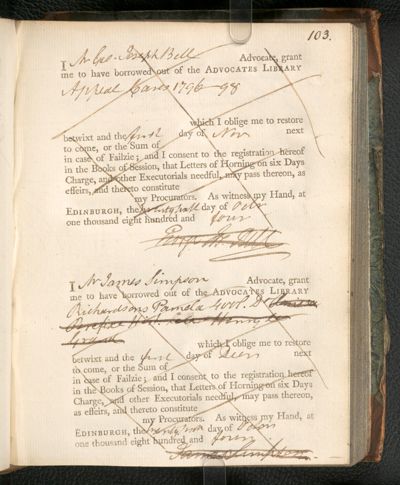 103.
I Mr Geo. Joseph Bell Advocate, grant
me to have borrowed out of the ADVOCATES LIBRARY
Appeal Cases 1796-98
which I oblige me to restore
betwixt and the first day of Nov next
to come, or the Sum of
in case of Failzie; and I consent to the registration hereof
in the Books of Session, that Letters of Horning on six Days
Charge, and other Executorials needful, may pass thereon, as
effeirs, and thereto constitute
my Procurators. As witness my Hand, at
EDINBURGH, the day of
one thousand eight hundred and four
I Mr James Simpson Advocate, grant
me to have borrowed out of the ADVOCATES LIBRARY
Richardsons Pamela
which I oblige me to restore
betwixt and the first day of next
to come, or the Sum of
in case of Failzie; and I consent to the registration hereof
in the Books of Session, that Letters of Horning on six Days
Charge, and other Executorials needful, may pass thereon,
as effeirs, and thereto constitute
my Procurators. As witness my Hand, at
EDINBURGH, the day of
one thousand eight hundred and four
James Simpson